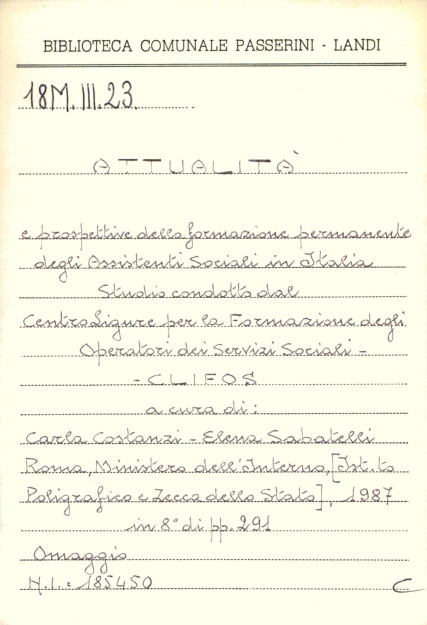 BIBLIOTECA COMUNALE PASSERINI - LANDI
18M.III.23.
ATTUALITÀ
e prospettive della formazione permanente
degli Assistenti Sociali in Italia
Studio condotto dal
Centro Ligure per la Formazione degli
Operatori dei Servizi Sociali -
- CLIFOS
a cura di:
Carla Costanzi - Elena Sabatelli
Roma, Ministero dell'Interno, [Ist.to
Poligrafico e Zecca dello Stato], 1987
in 8° di pp. 291
Omaggio
N.I.: 185450
C